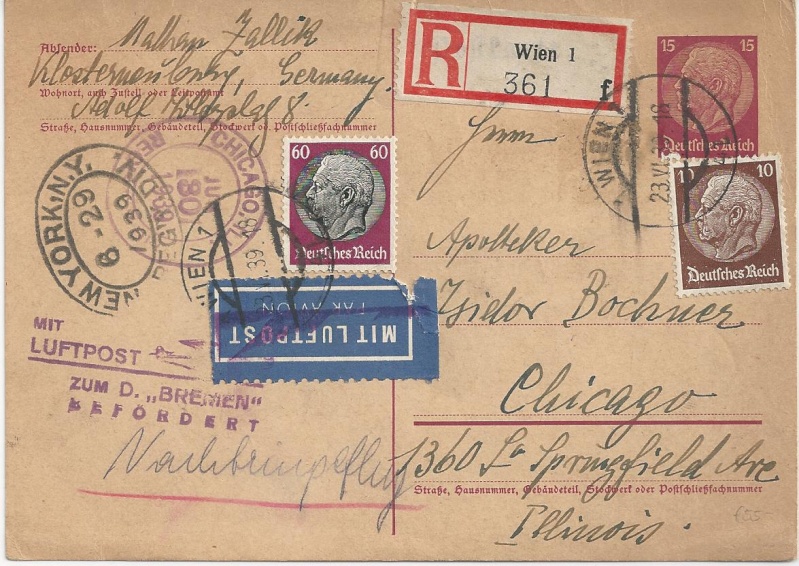 Absender: Nathan Zallik
Klosterneuburg, Germany
Wohnort, auch Zustell- oder Leitpostamt
Adolf
8.
Straße, Hausnummer, Gebäudeteil, Stockwerk oder Postschließfachnummer
R
Wien 1
361 f
15 15
Deutsches Reich
WIEN 1
23.VI.
10 10
Deutsches Reich
60 60
Deutsches Reich
WIEN 1
CHICAGO
180
NEW YORK, N.Y.
6-29
939
REG'Y. DIV.
MIT LUFTPOST
PAR AVION
MIT
LUFTPOST
ZUM D. „BREMEN"
BEFÖRDERT
Nachbringeflug
Herrn
Apotheker
Isidor Bochner
Chicago
1360 So Springfield Ave
Straße, Hausnummer, Gebäudeteil, Stockwerk oder Postschließfachnummer
Illinois.